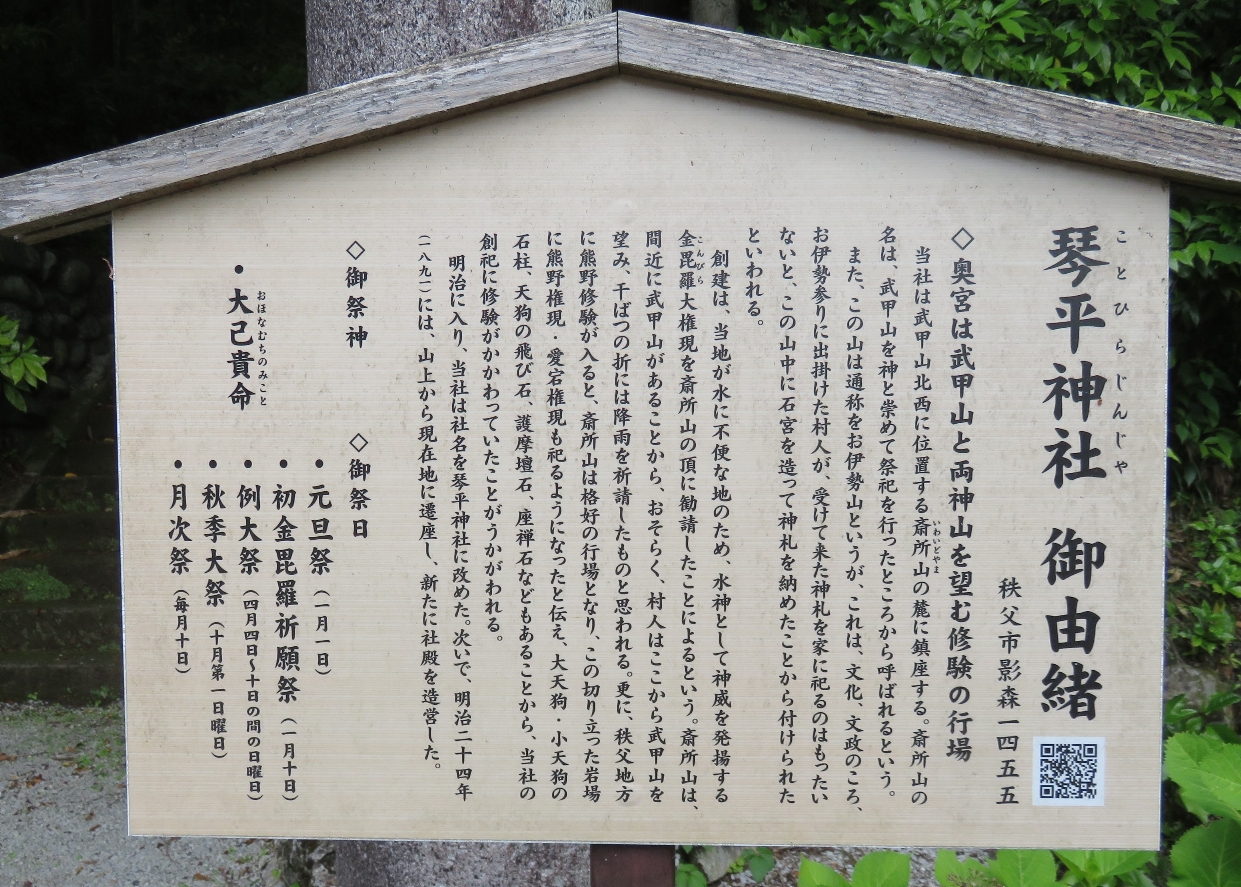 琴平神社 御由緒
ことひらじんじゃ
秩父市影森一四五五
◇奥宮は武甲山と両神山を望む修験の行場
当社は武甲山北西に位置する斎所山の麓に鎮座する。斎所山の
いわいどやま
名は、武甲山を神と崇めて祭祀を行ったところから呼ばれるという。
また、この山は通称をお伊勢山というが、これは、文化、文政のころ、
お伊勢参りに出掛けた村人が、受けて来た神札を家に祀るのはもったい
ないと、この山中に石宮を造って神札を納めたことから付けられた
といわれる。
創建は、当地が水に不便な地のため、水神として神威を発揚する
金毘羅大権現を斎所山の頂に勧請したことによるという。斎所山は、
こんぴら
間近に武甲山があることから、おそらく、村人はここから武甲山を
望み、干ばつの折には降雨を祈請したものと思われる。更に、秩父地方
に熊野修験が入ると、斎所山は格好の行場となり、この切り立った岩場
に熊野権現・愛宕権現も祀るようになったと伝え、大天狗・小天狗の
石柱、天狗の飛び石、護摩壇石、座禅石などもあることから、当社の
創祀に修験がかかわっていたことがうかがわれる。
明治に入り、当社は社名を琴平神社に改めた。次いで、明治二十四年
(一八九一)には、山上から現在地に遷座し、新たに社殿を造営した。
◇御祭神
・大己貴命
おほなむちのみこと
◇御祭日
・元旦祭(一月一日)
・初金毘羅祈願祭(一月十日)
・例大祭(四月四日〜十日の間の日曜日)
・秋季大祭(十月第一日曜日)
・月次祭(毎月十日)